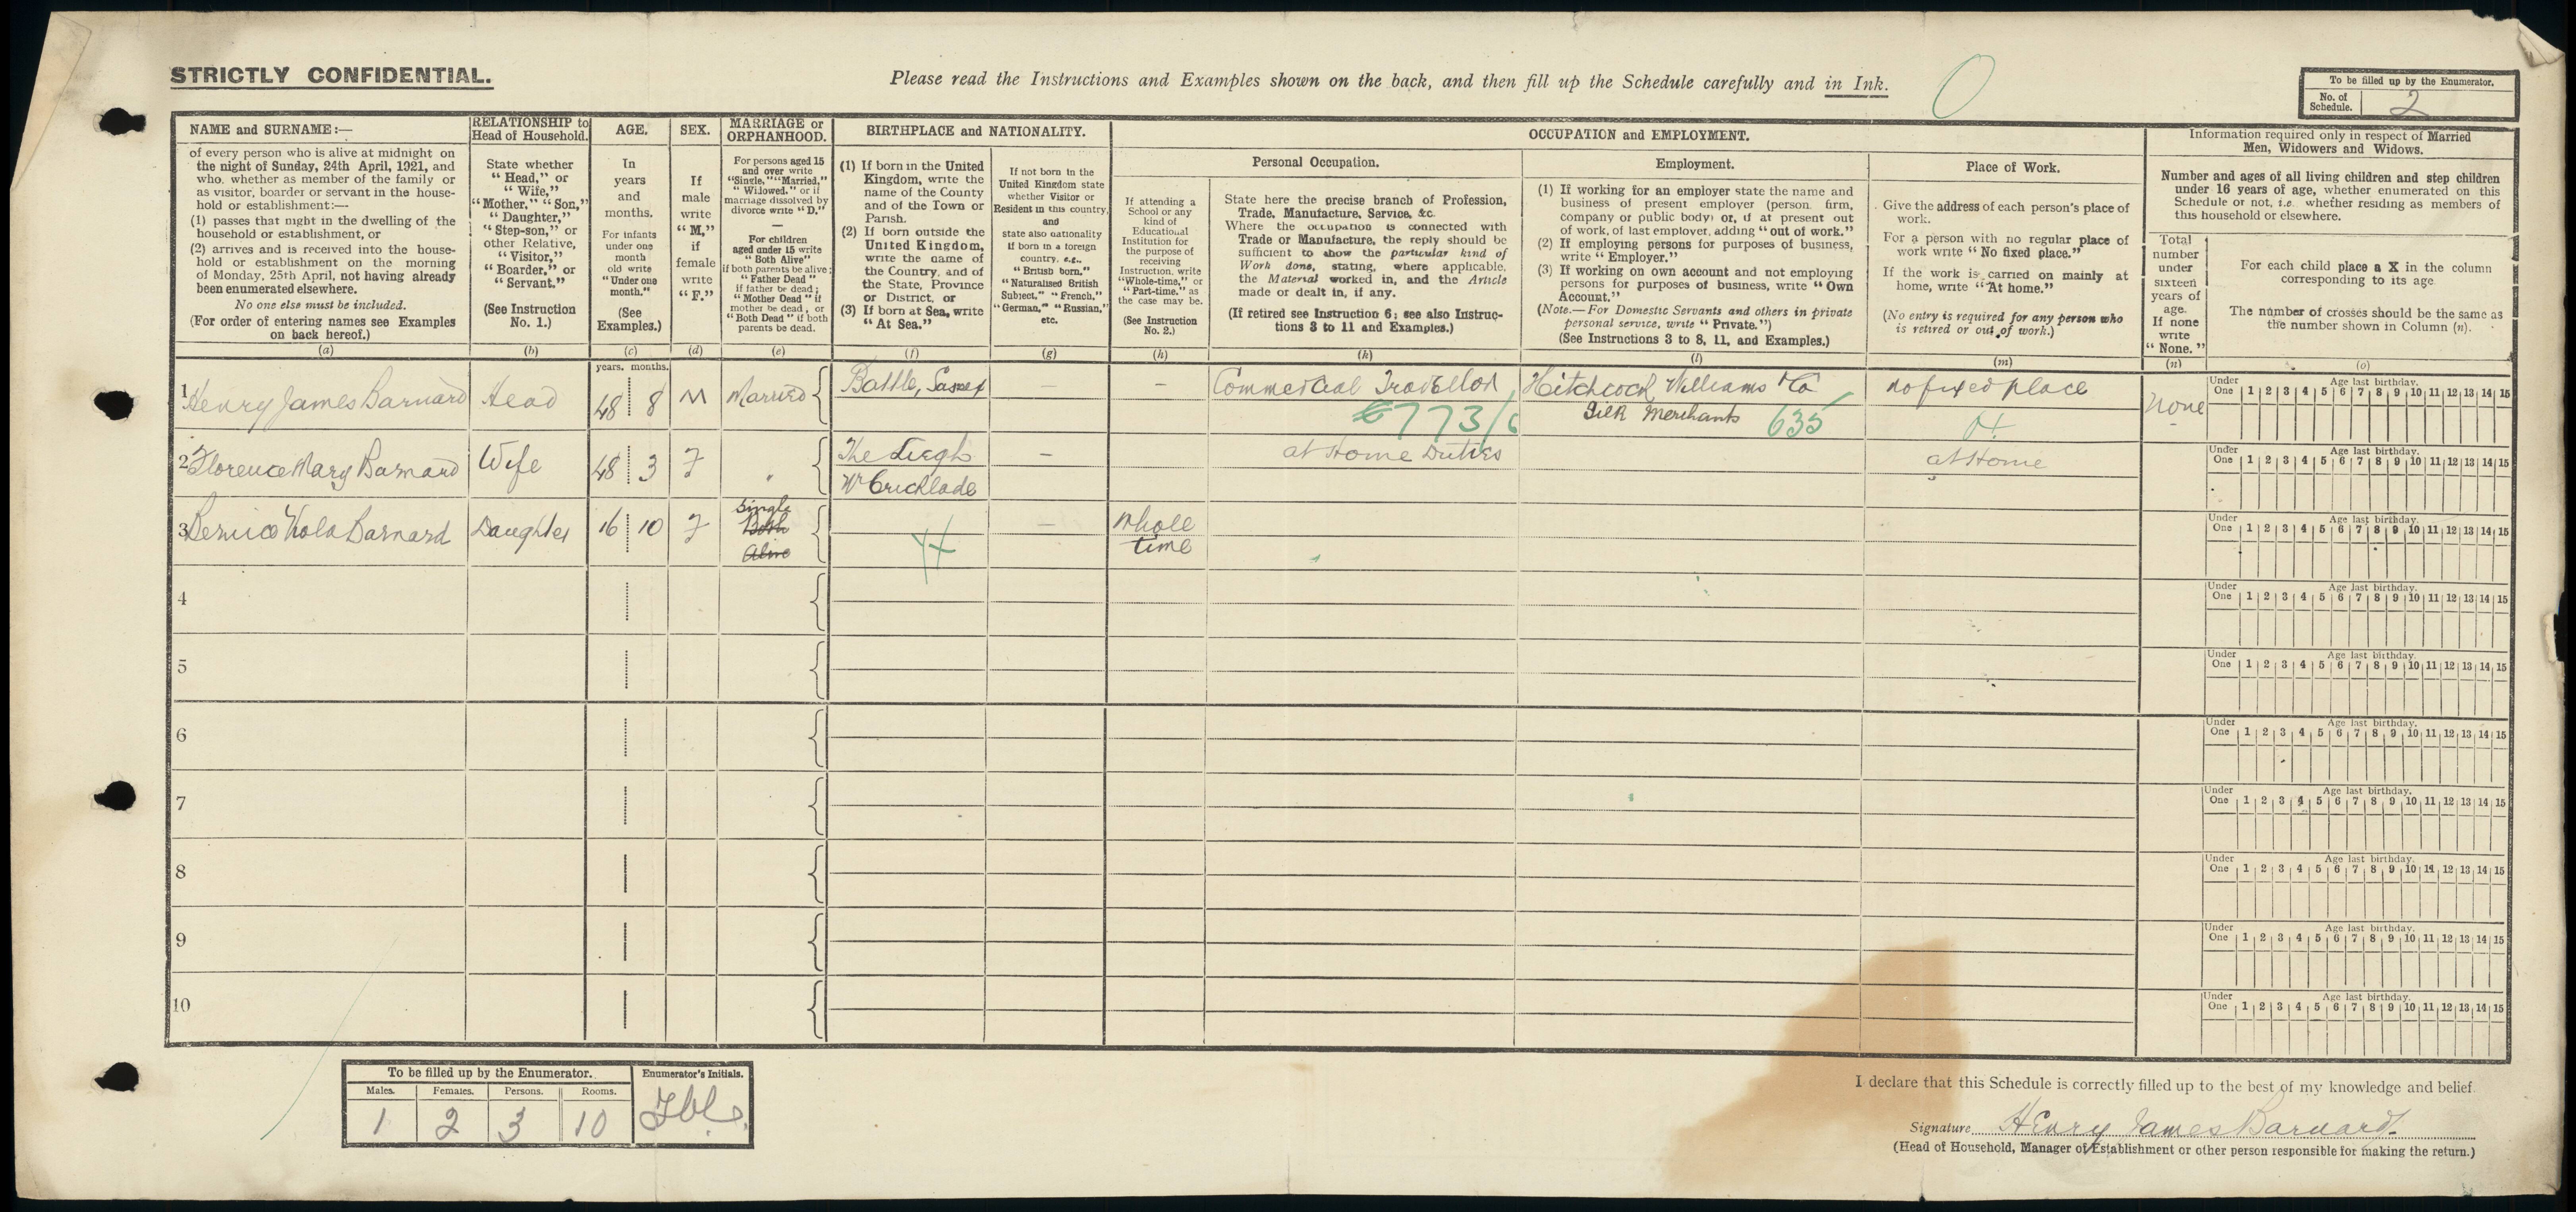 STRICTLY CONFIDENTIAL.
Please read the Instructions and Examples shown on the back, and then fill up the Schedule carefully and in Ink.
To be filled up by the Enumerator.
No. of Schedule. 2
NAME and SURNAME:—
of every person who is alive at midnight on
the night of Sunday, 24th April, 1921, and
who, whether as member of the family or
as visitor, boarder or servant in the house-
hold or establishment:—
(1) passes that night in the dwelling of the
household or establishment, or
(2) arrives and is received into the house-
hold or establishment on the morning
of Monday, 25th April, not having already
been enumerated elsewhere.
No one else must be included.
(For order of entering names see Examples
on back hereof.)
(a)
RELATIONSHIP to
Head of Household.
State whether
"Head," or
"Wife,"
"Mother," "Son,"
"Daughter,"
"Step-son," or
other Relative,
"Visitor,"
"Boarder," or
"Servant."
(See Instruction
No. 1.)
(b)
AGE.
In
years
and
months.
For infants
under one
month
old write
"Under one
month."
(See
Examples.)
(c)
SEX.
If
male
write
"M,"
if
female
write
"F."
(d)
MARRIAGE or
ORPHANHOOD.
For persons aged 15
and over write
"Single," "Married,"
"Widowed," or if
marriage dissolved by
divorce write "D."
—
For children
aged under 15 write
"Both Alive"
if both parents be alive;
"Father Dead"
if father be dead;
"Mother Dead" if
mother be dead, or
"Both Dead" if both
parents be dead.
(e)
BIRTHPLACE and NATIONALITY.
(1) If born in the United
Kingdom, write the
name of the County
and of the Town or
Parish.
(2) If born outside the
United Kingdom,
write the name of
the Country, and of
the State, Province
or District, or
(3) If born at Sea, write
"At Sea."
(f)
If not born in the
United Kingdom state
whether Visitor or
Resident in this country,
and
state also nationality
if born in a foreign
country, e.g.,
"British born."
"Naturalised British
Subject," "French,"
"German," "Russian,"
etc.
(g)
OCCUPATION and EMPLOYMENT.
Personal Occupation.
If attending a
School or any
kind of
Educational
Institution for
the purpose of
receiving
Instruction, write
"Whole-time," or
"Part-time," as
the case may be.
(See Instruction
No. 2.)
(h)
State here the precise branch of Profession,
Trade, Manufacture, Service, &c.
Where the occupation is connected with
Trade or Manufacture, the reply should be
sufficient to show the particular kind of
Work done, stating, where applicable,
the Material worked in, and the Article
made or dealt in, if any.
(If retired see Instruction 6; see also Instruc-
tions 3 to 11 and Examples.)
(k)
Employment.
(1) If working for an employer state the name and
business of present employer (person, firm,
company or public body) or, if at present out
of work, of last employer, adding "out of work."
(2) If employing persons for purposes of business,
write "Employer."
(3) If working on own account and not employing
persons for purposes of business, write "Own
Account."
(Note.—For Domestic Servants and others in private
personal service, write "Private.")
(See Instructions 3 to 8, 11, and Examples.)
(l)
Place of Work.
Give the address of each person's place of
work.
For a person with no regular place of
work write "No fixed place."
If the work is carried on mainly at
home, write "At home."
(No entry is required for any person who
is retired or out of work.)
(m)
Information required only in respect of Married
Men, Widowers and Widows.
Number and ages of all living children and step children
under 16 years of age, whether enumerated on this
Schedule or not, i.e. whether residing as members of
this household or elsewhere.
Total
number
under
sixteen
years of
age.
If none
write
"None."
(n)
For each child place a X in the column
corresponding to its age
The number of crosses should be the same as
the number shown in Column (n).
(o)
years. months.
1 Henry James Barnard Head 48 8 M Married Battle, Sussex — — Commercial Traveller Hitchcock Williams & Co no fixed place None
773/6 Silk Merchants 635
2 Florence Mary Barnard Wife 48 3 F " The Leigh — at Home Duties at Home
Nr Cricklade
3 Bernice Viola Barnard Daughter 16 10 F Single — Whole
Both time
Alive
44
4
5
6
7
8
9
10
Under One Age last birthday.
1 2 3 4 5 6 7 8 9 10 11 12 13 14 15
Under One Age last birthday.
1 2 3 4 5 6 7 8 9 10 11 12 13 14 15
Under One Age last birthday.
1 2 3 4 5 6 7 8 9 10 11 12 13 14 15
Under One Age last birthday.
1 2 3 4 5 6 7 8 9 10 11 12 13 14 15
Under One Age last birthday.
1 2 3 4 5 6 7 8 9 10 11 12 13 14 15
Under One Age last birthday.
1 2 3 4 5 6 7 8 9 10 11 12 13 14 15
Under One Age last birthday.
1 2 3 4 5 6 7 8 9 10 11 12 13 14 15
Under One Age last birthday.
1 2 3 4 5 6 7 8 9 10 11 12 13 14 15
Under One Age last birthday.
1 2 3 4 5 6 7 8 9 10 11 12 13 14 15
Under One Age last birthday.
1 2 3 4 5 6 7 8 9 10 11 12 13 14 15
To be filled up by the Enumerator.
Enumerator's Initials.
Males. Females. Persons. Rooms.
1 2 3 10
I declare that this Schedule is correctly filled up to the best of my knowledge and belief
Signature Henry James Barnard.
(Head of Household, Manager of Establishment or other person responsible for making the return.)